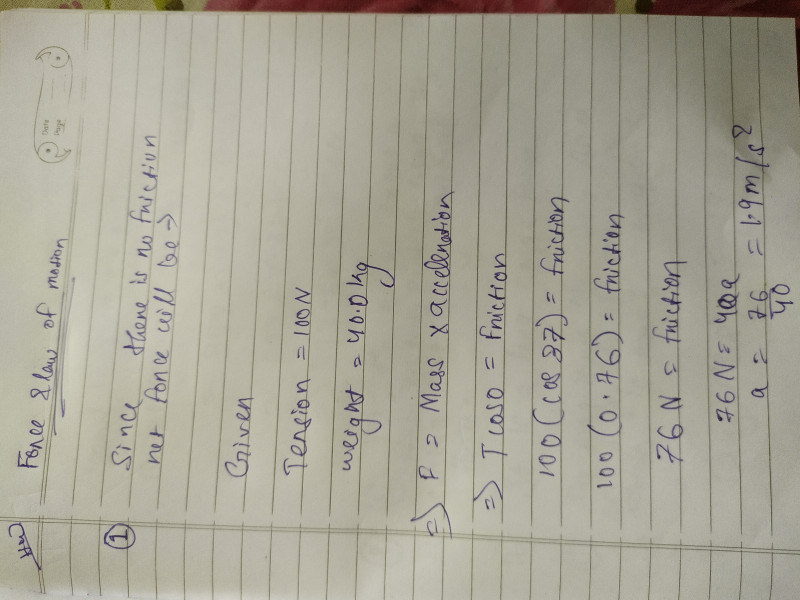 HW
Force & law of motion
Date
Page
① Since there is no friction
net force will be →
Given
Tension = 100N
weight = 40.0 kg
⇒ F = Mass x accelleration
⇒ T cos0 = friction
100 (cos 37) = friction
100 (0.76) = friction
76 N = friction
76 N = 40a
a = 76/40 = 1.9 m/s²